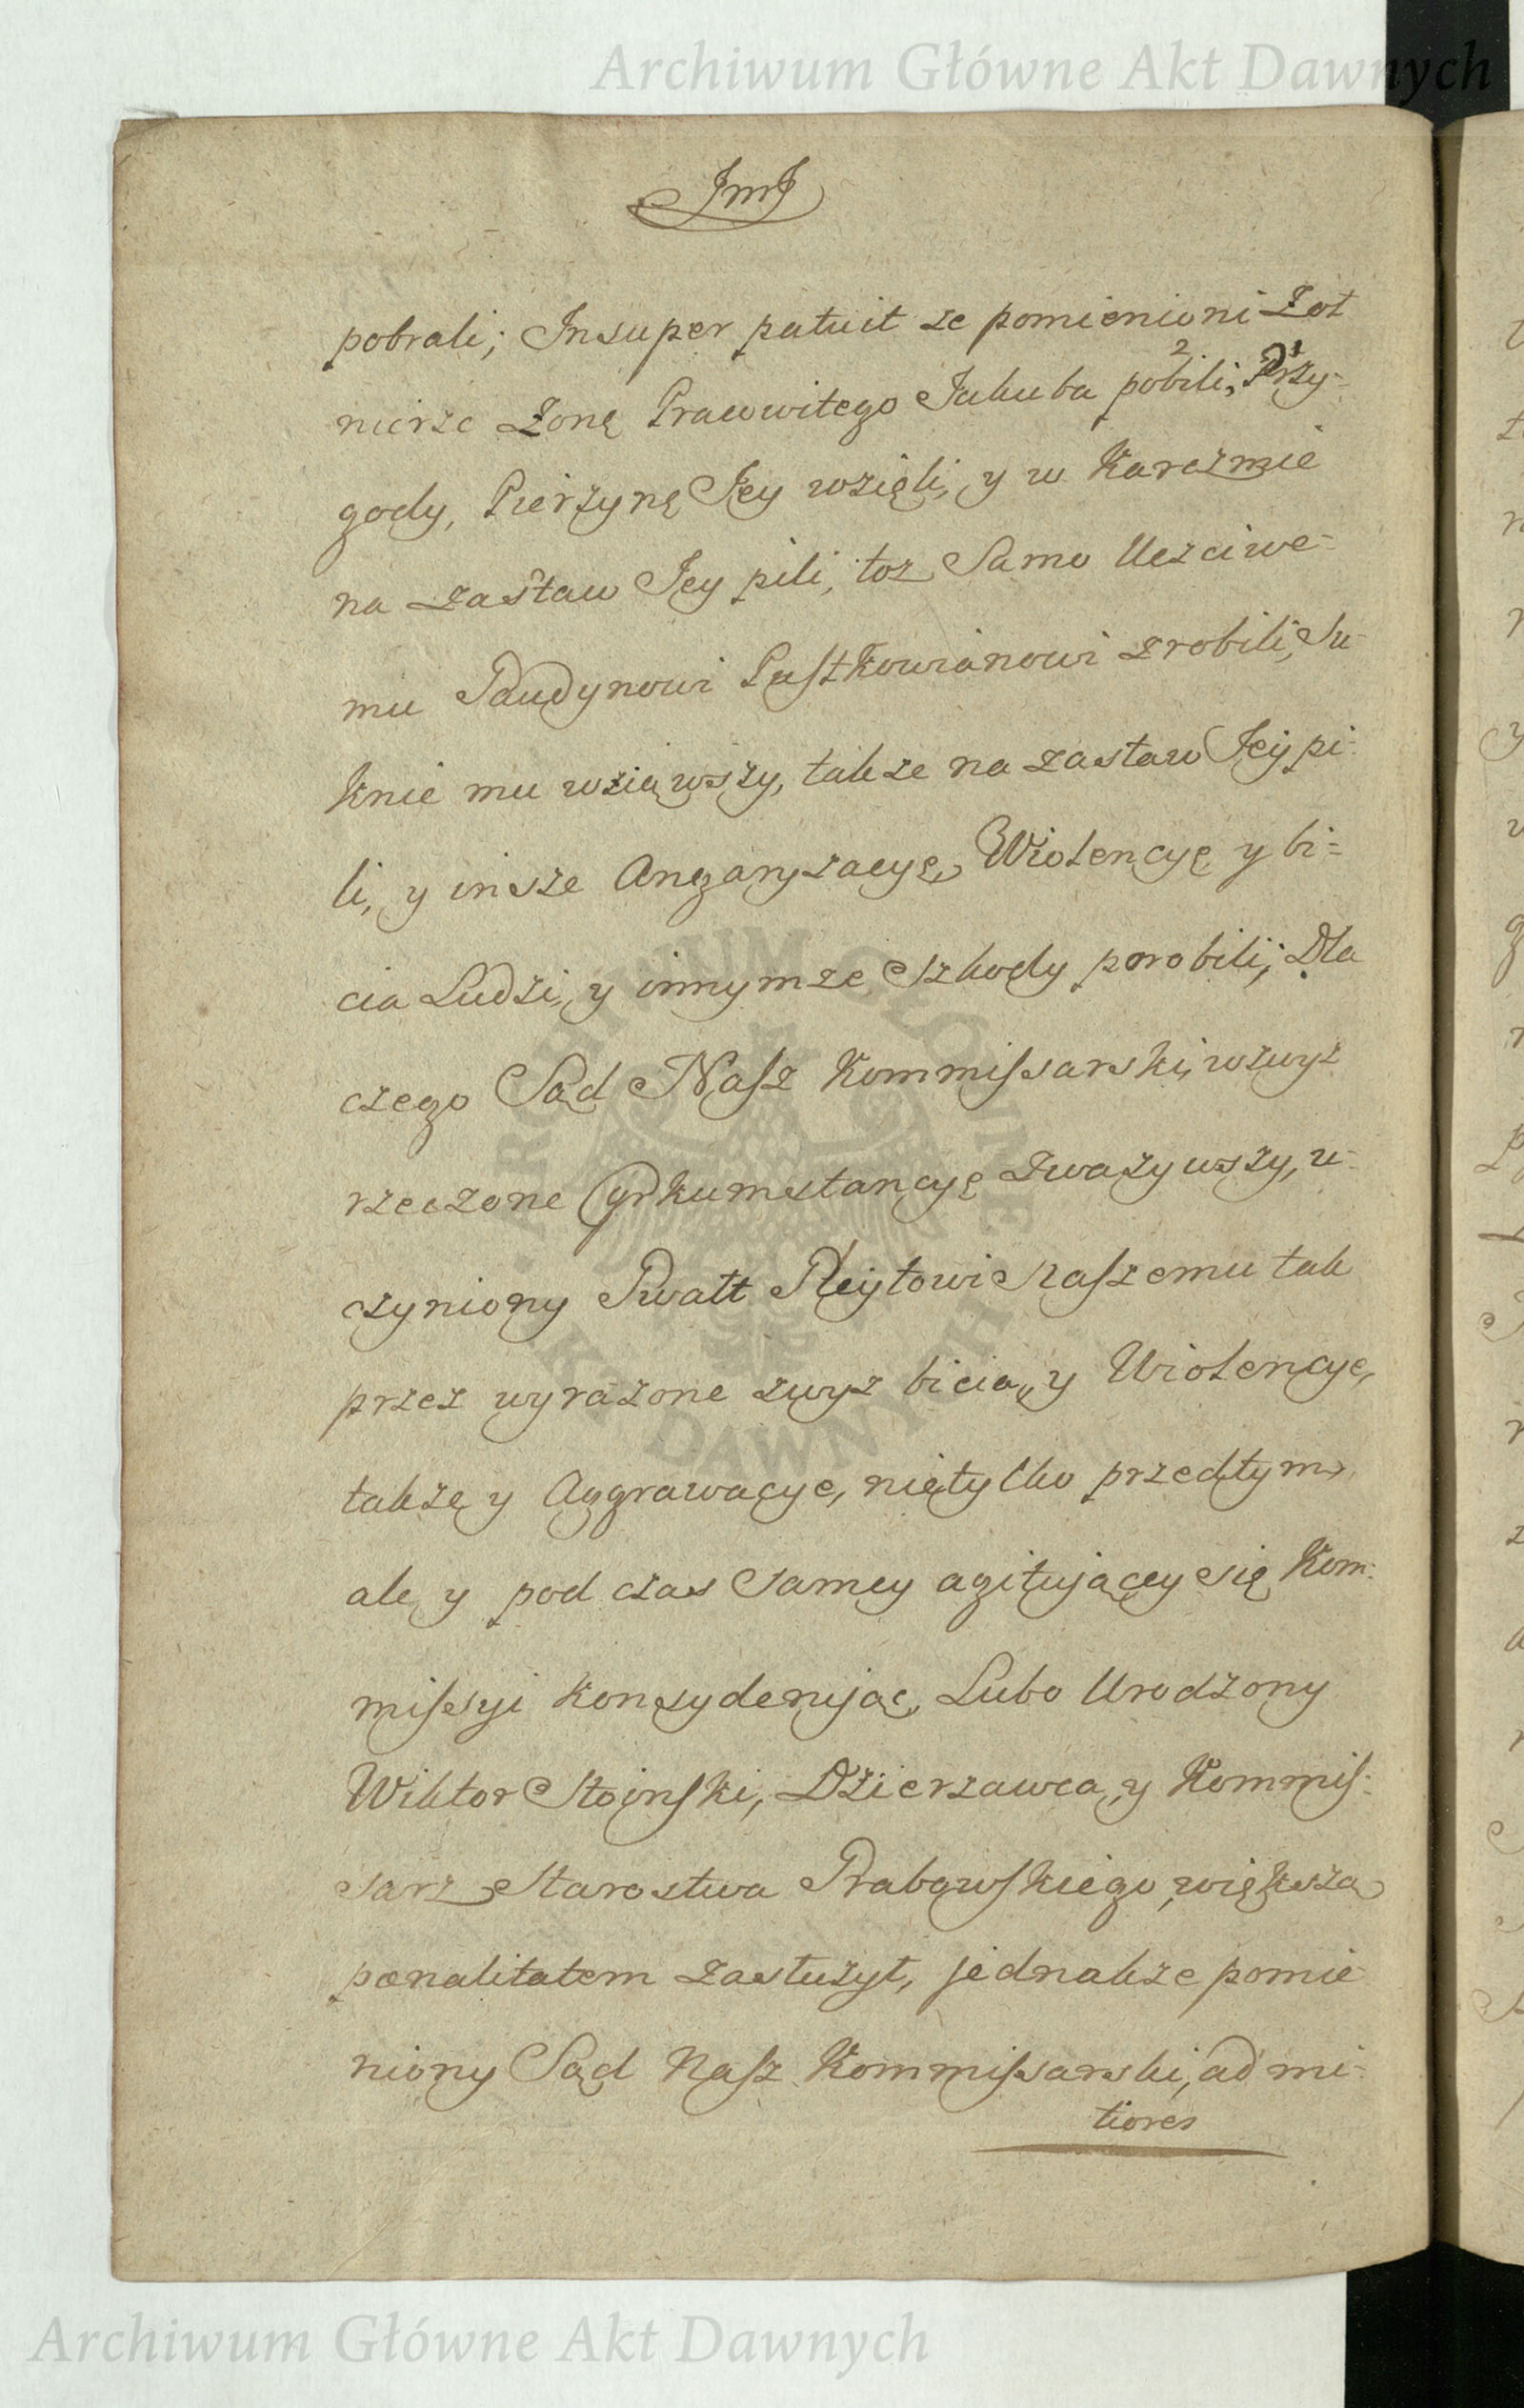 Archiwum Główne Akt Dawnych
JmJ
pobrali; Insuper patuit ze pomienioni Zoł
nierze Zonę Prawowitego Jakuba pobili, Przy-
gody, Pierzynę Jey wzięli, y w Karczmie
na zastaw Jey pili, toz Samo Uczciwe-
mu Paudynowi Pastkowianowi zrobili, Su-
knie mu wziąwszy, takze na zastaw Jey pi-
li, y insze Angaryzacye, Wiolencye y bi=
cia Ludzi, y innymze Szkody porobili; Dla
czego Sąd Nasz Kommissarski, wzwyz
rzeczone Cyrkumstancye zwazywszy, u-
czyniony Gwałt Gleytowi Naszemu tak
przez wyrazone zwyz bicia, y Wiolencye,
takze y Aggrawacye, nietylko przedtym,
ale y pod czas Samey agitującey się Kom-
missyi konsyderując, Lubo Urodzony
Wiktor Stoinski, Dzierzawca, y Kommis-
sarz Starostwa Grabowskiego, większą
pœnalitatem zasłuzył, jednakze pomie
niony Sąd Nasz Kommissarski, ad mi-
tiores
ARCHIWUM GŁÓWNE AKT DAWNYCH
Archiwum Główne Akt Dawnych